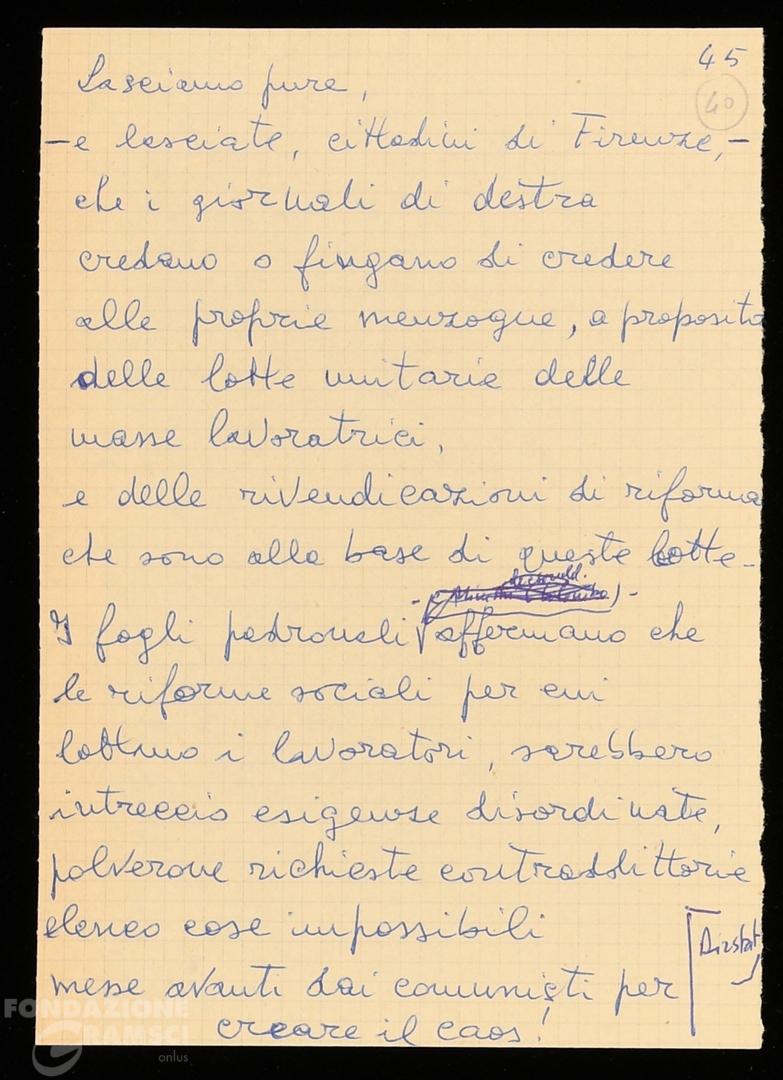 45
40
Lasciamo pure,
- e lasciate, cittadini di Firenze, -
che i giornali di destra
credano o fingano di credere
alle proprie menzogne, a proposito
delle lotte unitarie delle
masse lavoratrici,
e delle rivendicazioni di riforma
che sono alla base di queste lotte -
I fogli padronali affermano che
le riforme sociali per cui
lottano i lavoratori, sarebbero
intreccio esigenze disordinate,
polverone richieste contraddittorie
elenco cose impossibili
messe avanti dai comunisti per
creare il caos!
FONDAZIONE
GRAMSCI
onlus